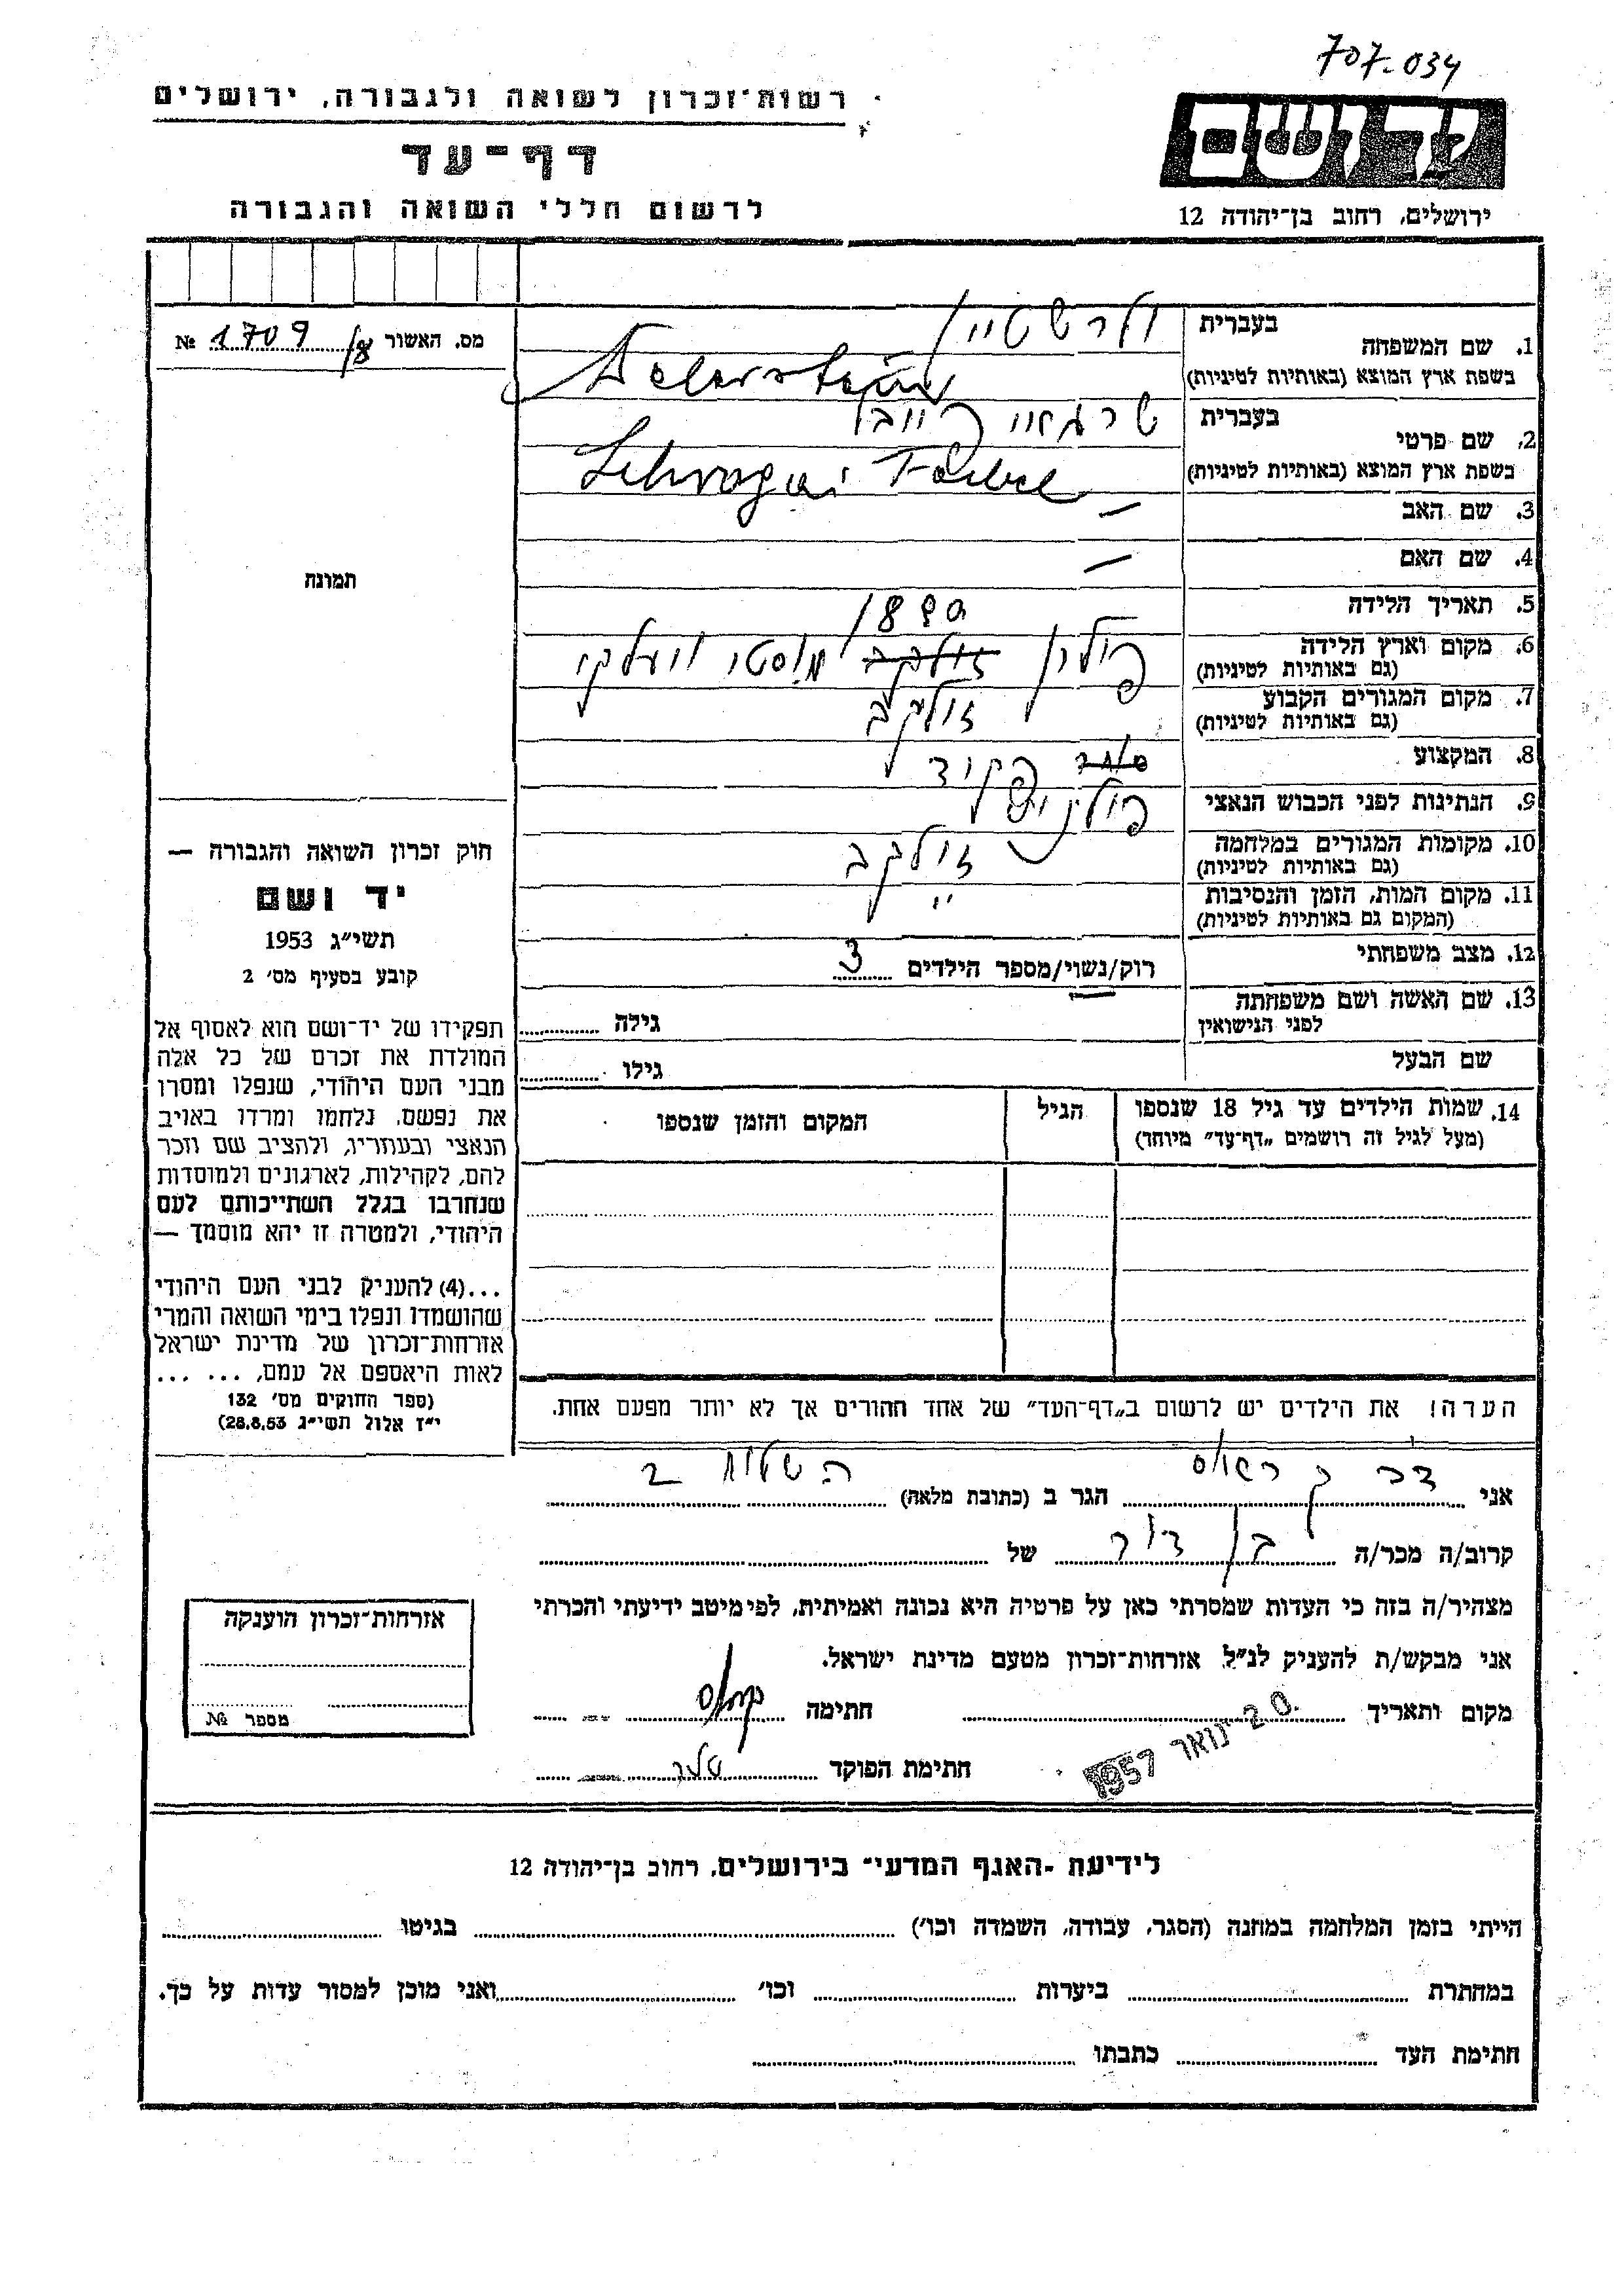 707.034
רשות־זכרון לשואה ולגבורה, ירושלים
דף־עד
לרשום חללי השואה והגבורה
ידושם
ירושלים, רחוב בן־יהודה 12
מס. האשור 1709/8 №
1. שם המשפחה
בעברית
בשפת ארץ המוצא (באותיות לטיניות)
2. שם פרטי
בעברית
בשפת ארץ המוצא (באותיות לטיניות) Schragai Faibel
3. שם האב —
4. שם האם —
5. תאריך הלידה
6. מקום וארץ הלידה
(גם באותיות לטיניות) פולין
7. מקום המגורים הקבוע
(גם באותיות לטיניות) זולקב
8. המקצוע פקיד
9. הנתינות לפני הכבוש הנאצי פולנית
10. מקומות המגורים במלחמה
(גם באותיות לטיניות) זולקב
11. מקום המות, הזמן והנסיבות
(המקום גם באותיות לטיניות) "
12. מצב משפחתי רוק/נשוי/מספר הילדים 3
13. שם האשה ושם משפחתה
לפני הנישואין גילה
שם הבעל גילו
14. שמות הילדים עד גיל 18 שנספו
(מעל לגיל זה רושמים „דף־עד” מיוחד)
הגיל
המקום והזמן שנספו
הערה! את הילדים יש לרשום ב„דף־העד” של אחד ההורים אך לא יותר מפעם אחת.
תמונה
חוק זכרון השואה והגבורה —
יד ושם
תשי״ג 1953
קובע בסעיף מס׳ 2
תפקידו של יד־ושם הוא לאסוף אל
המולדת את זכרם של כל אלה
מבני העם היהודי, שנפלו ומסרו
את נפשם, נלחמו ומרדו באויב
הנאצי ובעוזריו, ולהציב שם וזכר
להם, לקהילות, לארגונים ולמוסדות
שנחרבו בגלל השתייכותם לעם
היהודי, ולמטרה זו יהא מוסמך —
...(4) להעניק לבני העם היהודי
שהושמדו ונפלו בימי השואה והמרי
אזרחות־זכרון של מדינת ישראל
לאות היאספם אל עמם, ... ...
(ספר החוקים מס׳ 132
י״ז אלול תשי״ג 28.8.53)
אני הגר ב (כתובת מלאה)
קרוב/ה מכר/ה בן דוד של
מצהיר/ה בזה כי העדות שמסרתי כאן על פרטיה היא נכונה ואמיתית, לפי מיטב ידיעתי והכרתי
אני מבקש/ת להעניק לנ״ל אזרחות־זכרון מטעם מדינת ישראל.
מקום ותאריך 20 ינואר 1957 חתימה
חתימת הפוקד
אזרחות־זכרון הוענקה
מספר №
לידיעת ־האגף המדעי־ בירושלים, רחוב בן־יהודה 12
הייתי בזמן המלחמה במחנה (הסגר, עבודה, השמדה וכו׳) בגיטו
במחתרת ביערות וכו׳ ואני מוכן למסור עדות על כך.
חתימת העד כתבתו